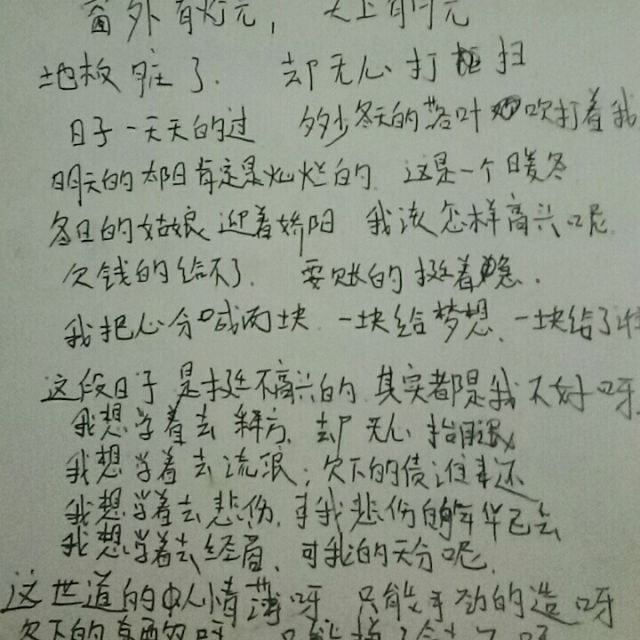 窗外有灯光， 天上有月光
地板脏了. 却无心打扫
日子一天天的过 多少冬天的落叶吹打着我
明天的太阳肯定是灿烂的. 这是一个暖冬
冬日的姑娘迎着娇阳. 我该怎样高兴呢.
欠钱的给不了. 要账的挺着急.
我把心分成两块. 一块给梦想. 一块给了谁
这段日子是挺不高兴的. 其实都是我不好呀.
我想学着去释方. 却无心抬眼
我想学着去流浪; 欠下的债谁来还
我想学着去悲伤. 可我悲伤的年华已去
我想学着去经商. 可我的天分呢.
这世道的人情薄呀 只能手动的造呀
欠下的